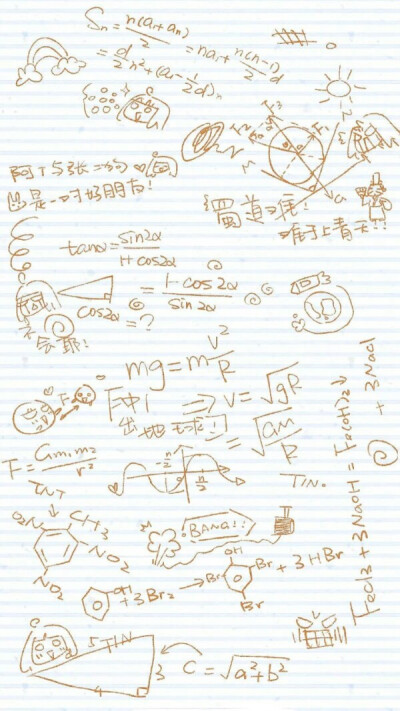 Sn = n(a1+an)/2 = na1 + n(n-1)/2 d
= d/2 n² + (a1 - 1/2 d)n
阿T与张二狗
也是一对好朋友！
蜀道难
难于上青天!!
tanα = sin2α/1+cos2α
= 1-cos2α/sin2α
cos2α = ?
不会耶！
mg = m v²/R
F
⇒ V = √gR
出地球
= √GM/R
F = Gm1m2/r²
π/2
TNT
TIN.
O2N
CH3
NO2
NO2
BANG!!
OH
+ 3Br2
OH
Br
Br
Br
+ 3HBr
FeCl3 + 3NaOH = Fe(OH)3↓ + 3NaCl
5
TIN
3
4
C = √a²+b²